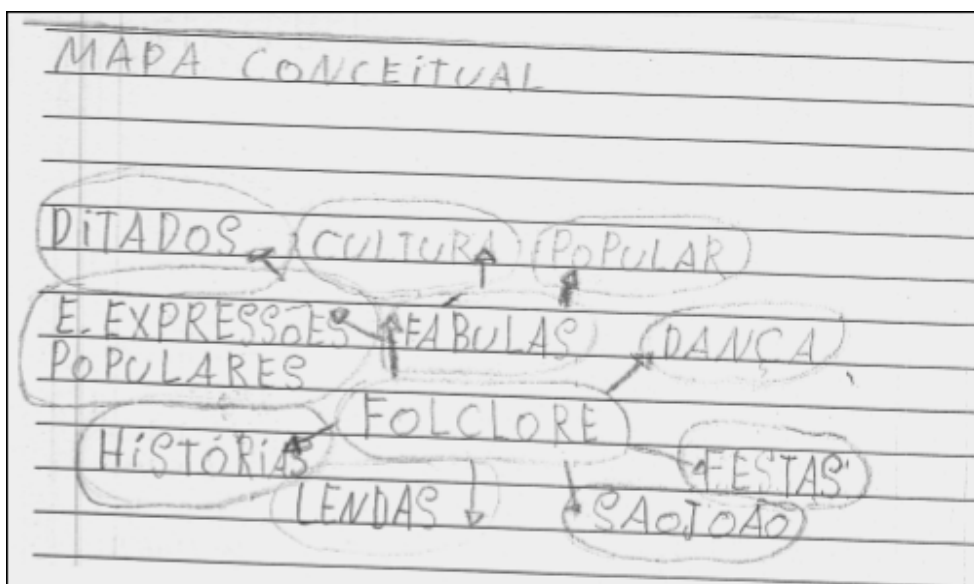 MAPA CONCEITUAL
DITADOS CULTURA POPULAR
E. EXPRESSÕES FABULAS DANÇA
POPULARES
FOLCLORE
HISTÓRIAS FESTAS
LENDAS SAOJOÃO